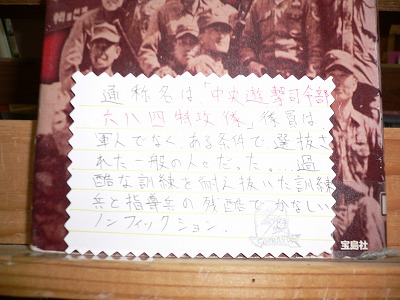 通称名は「中央遊撃司令部
六八四特攻隊」隊員は
軍人でなく、ある条件で選抜さ
れた一般の人々だった。…過
酷な訓練を耐え抜いた訓練
兵と指導兵の残酷でかなしい
ノンフィクション.
宝島社